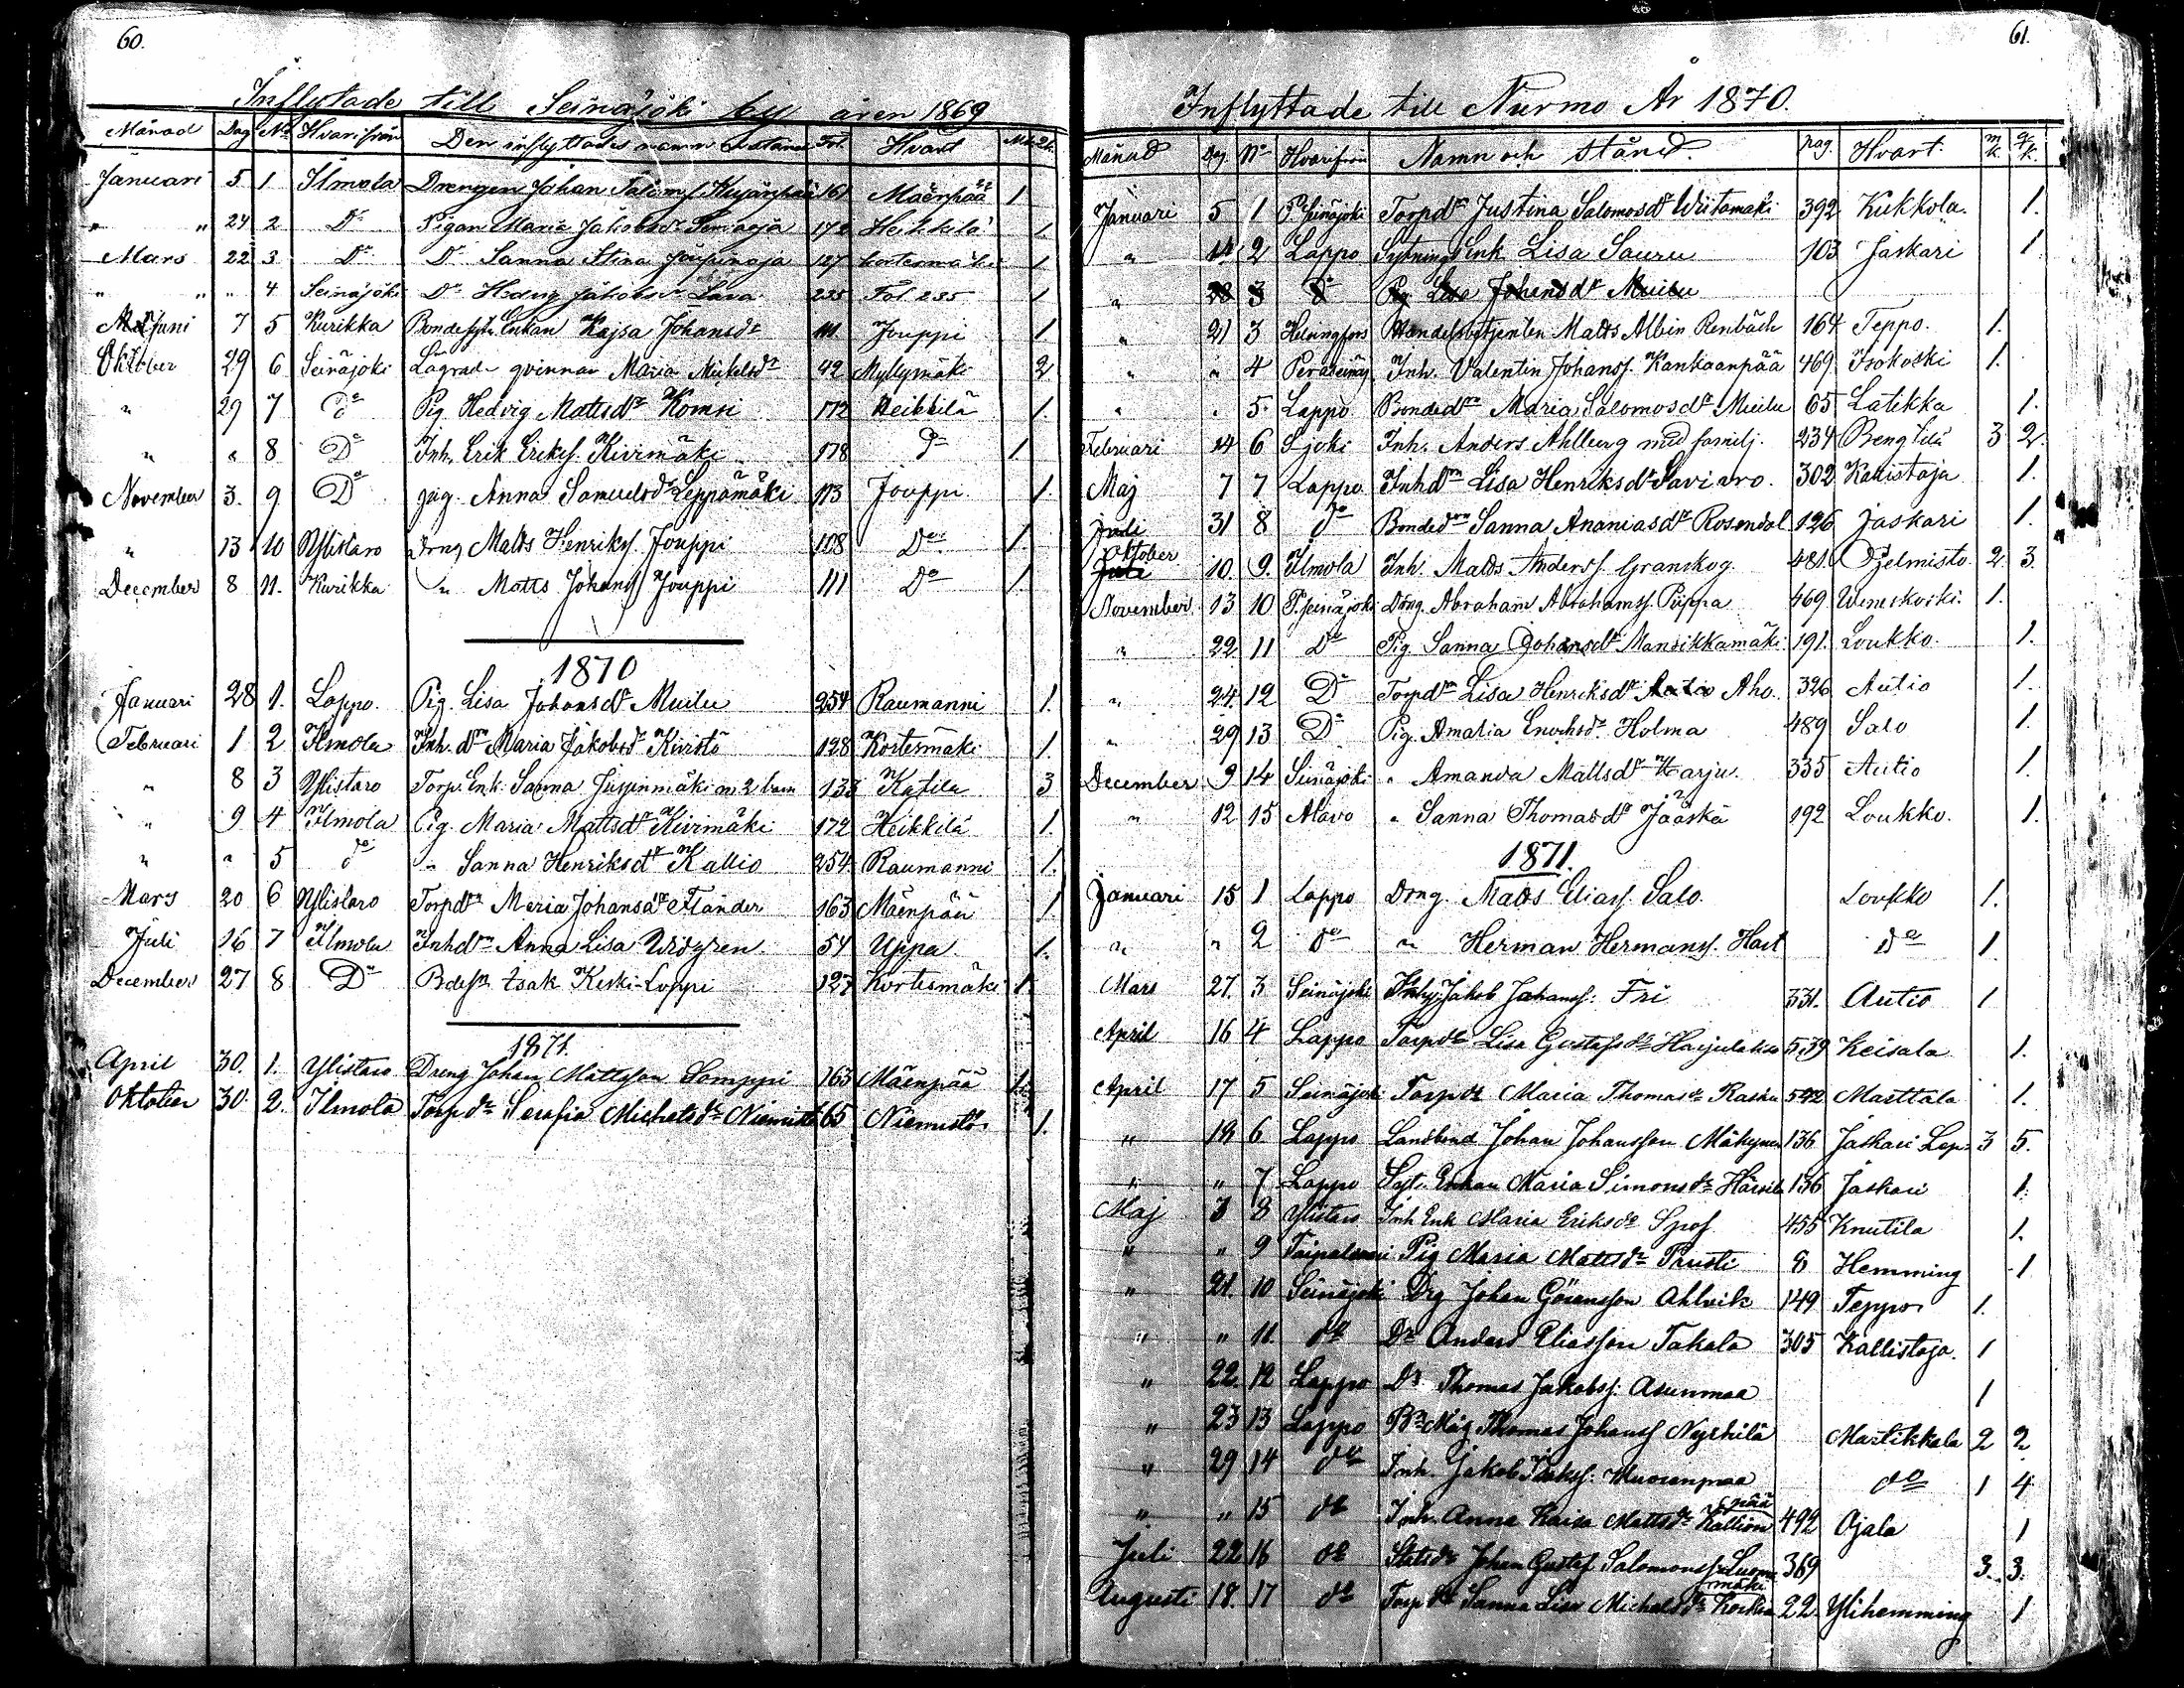 60.
Inflytade till Seinäjöki by åren 1869
Månad Dag No Hvarifrån Den inflyttades namn Fol. Hvart Mk Qk
Januari 5 1 Ilmola Drengen Johan 161 Mäenpää 1
" " 24 2 Do Pigan Maria Jakobsdr 172 Heikkilä 1
Mars 22 3 Do Do Sanna Stina 127 Kortesmäki 1
" " " 4 Seinäjöki Do Hedvig Jakobsdr Lava 235 Fol 235 1
Juni 7 5 Kurikka Enkan Kajsa Johansdr 111 Jouppi 1
Oktober 29 6 Seinäjoki Lagrade qvinnan Maria Mickelsdr 42 Myllymäki 2
" 29 7 Do Pig. Hedvig Mattsdr Komsi 172 Heikkilä 1.
" " 8 Do Inh. Erik Eriks. Kivimäki 178 Do 1
November 3. 9 Do pig. Anna Samuelsdr Leppämäki 113 Jouppi 1.
" 13 10 Ylistaro Drng Matts Henriks. Jouppi 108 Do 1.
December 8 11. Kurikka " Matts Johans. Jouppi 111 Do 1.
1870
Januari 28 1. Lappo. Pig. Lisa Johansdr Muilu 254 Raumanni 1.
Februari 1 2 Ilmola Inh. dr Maria Jakobsdr Kivistö 128 Kortesmäki 1.
" 8 3 Ylistaro Torp. Enk. Sanna m 2 barn 133 Katila 3
" 9 4 Ilmola Pig. Maria Mattsdr Kivimäki 172 Heikkilä 1.
" " 5 do " Sanna Henriksdr Kallio 254 Raumanni 1.
Mars 20 6 Ylistaro Torpdr Maria Johansdr Fländer 163 Mäenpää 1
Juli 16 7 Ilmola Inhdr Anna Lisa Widgren 54 Uppa. 1.
December 27 8 Do Isak Keski-Loppi 127 Kortesmäki 1.
1871.
April 30. 1. Ylistaro Dreng Johan Mattsson Somppi 163 Mäenpää 1.
Oktober 30. 2. Ilmola Torpdr Serafia Michelsdr Niemistö 65 Niemistö 1.
61.
Inflyttade till Nurmo År 1870.
Månad Dag. No Hvarifrån Namn och stånd. pag. Hvart. m k. q k.
Januari 5 1 P. Seinäjoki Torpdr Justina Salomosdr Wiitamäki 392 Kukkola. 1.
" 14 2 Lappo Sytnings Enk Lisa Sauru 103 Jaskari 1
" 28 3 Do Pig Lisa Johansdr Muilu
" 21 3 Helsingfors Handelsbetjenten Matts Albin Renbäck 164 Teppo. 1.
" " 4 Peräseinäj Inh. Valentin Johans. Kankaanpää 469 Isokoski 1.
" " 5. Lappo Bondedr Maria Salomosdr Muilu 65 Latikka 1.
Februari 14 6 Sjoki Inh. Anders Ahlberg med familj. 234 Bengtilä 3 2.
Maj 7 7 Lappo Inhdr Lisa Henriksdr Saviaro. 302 Kallistaja 1.
Juli 31 8 do Bondedr Sanna Ananiasdr Rosendal 126 Jaskari 1.
Oktober 10. 9. Ilmola Inh. Matts Anders. Granskog. 481. 2. 3.
November 13 10 P. Seinäjoki Dräng. Abraham Abrahams. Piippa 469 1.
" 22. 11 Do Pig. Sanna Johansdr Mansikkamäki 191. Loukko. 1.
" 24. 12 Do Torpdr Lisa Henriksdr Aho. 326 Autio 1.
" 29 13 Do Pig. Amalia Enoksdr Holma 489 Salo 1.
December 9 14 Seinäjoki " Amanda Mattsdr Harju. 335 Autio 1.
" 12 15 Alavo " Sanna Thomasdr Jääskä 192 Loukko. 1.
1871.
Januari 15 1 Lappo Dräng. Matts Elias. Salo. Loukko 1.
" " 2 do " Herman Hermans. Hast do 1.
Mars 27. 3 Seinäjoki Jakob Johanss: Fri 331. Autio 1
April 16 4 Lappo Torpdr Lisa Gustafsdr 539 Keisala 1.
April 17 5 Seinäjoki Torpdr Maria Thomasdr Rasku 542 Marttala 1.
" 18 6 Lappo Landbond Johan Johansson 136 Jaskari Lap. 3 5.
" " 7 Lappo Syt. Enkan Maria Simonsdr Härsilä 136 Jaskari 1.
Maj 3 8 Ylistaro Inh Enk Maria Eriksdr 455 Knutila 1.
" " 9 Pig Maria Mattsdr 8 Hemming 1
" 21. 10 Seinäjoki Drg Johan Göransson Ahlvik 149 Teppo 1.
" " 11 do Do Anders Eliasson Takala 305 Kallistaja. 1
" 22 12 Lappo Do Thomas Jakobss: Asunmaa 1
" 23 13 Lappo Måg Thomas Johans Nyrhilä Martikkala 2 2
" 29 14 do Inh. Jakob do 1 4
" " 15 do Inh. Anna Kaisa Mattsdr Kallionpää 492 Ojala 1
Juli 22 16 do Johan Gustaf Salomons. Luomamäki 369 3. 3.
Augusti 18. 17 do Torpdr Sanna Lisa Michelsdr 22 Ylihemming 1